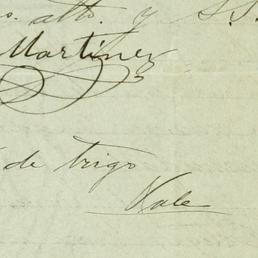 o. atto. y S.S.
Martinez
de trigo
Vale